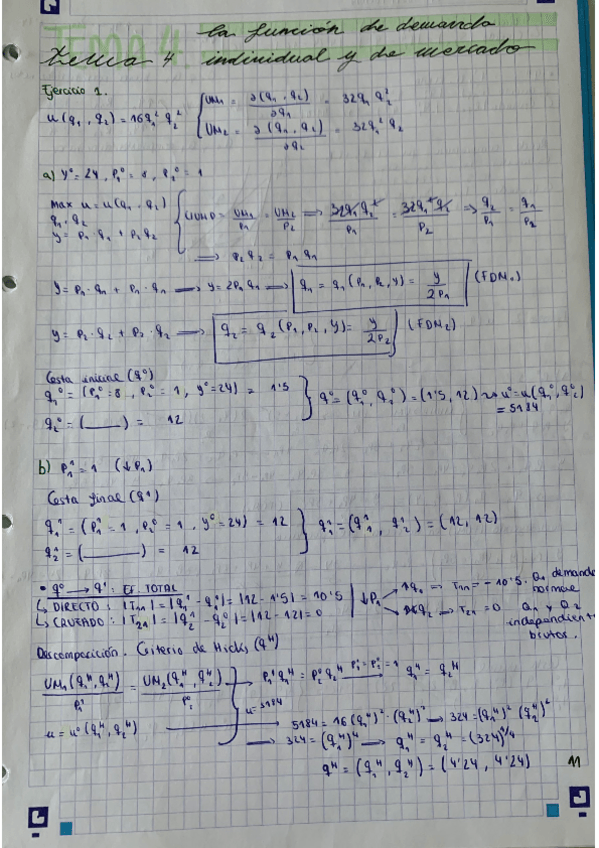 la función de demanda
Tema 4 individual y de mercado
Ejercicio 1.
u(q₁, q₂) = 16q₁² q₂² { UM₁ = ∂(q₁, q₂)/∂q₁ = 32q₁ q₂²
UM₂ = ∂(q₁, q₂)/∂q₂ = 32q₁² q₂
a) y⁰ = 24, P₁⁰ = 8, P₂⁰ = 1
max u = u(q₁, q₂)
q₁, q₂
y = P₁·q₁ + P₂q₂
UM₁/P₁ = UM₂/P₂ ⟹ 32q₁q₂²/P₁ = 32q₁²q₂/P₂ ⟹ q₂/P₁ = q₁/P₂
⟹ P₂q₂ = P₁q₁
y = P₁·q₁ + P₁·q₁ → y = 2P₁q₁ → q₁ = q₁(P₁, P₂, y) = y/2P₁ (FDM₁)
y = P₂·q₂ + P₂·q₂ → q₂ = q₂(P₁, P₂, y) = y/2P₂ (FDM₂)
Cesta inicial (q⁰)
q₁⁰ = (P₁⁰ = 8, P₂⁰ = 1, y⁰ = 24) = 1'5 } q⁰ = (q₁⁰, q₂⁰) = (1'5, 12) → u⁰ = u(q₁⁰, q₂⁰)
= 5184
q₂⁰ = (____) = 12
b) P₁¹ = 1 (↓P₁)
Cesta final (q¹)
q₁¹ = (P₁¹ = 1, P₂⁰ = 1, y⁰ = 24) = 12 } q¹ = (q₁¹, q₂¹) = (12, 12)
q₂¹ = (____) = 12
• q⁰ → q¹: EF. TOTAL
↳ DIRECTO: |T₁₁| = |q₁¹ - q₁⁰| = |12 - 1'5| = 10'5
↳ CRUZADO: |T₂₁| = |q₂¹ - q₂⁰| = |12 - 12| = 0
↓P₁ → ↑q₁ → T₁₁ = -10'5. Q₁ demanda normal
q₂ → T₂₁ = 0 Q₁ y Q₂
independient
brutos.
Descomposición. Criterio de Hicks (qᴴ)
UM₁(q₁ᴴ, q₂ᴴ)/P₁¹ = UM₂(q₁ᴴ, q₂ᴴ)/P₂⁰ → P₁¹q₁ᴴ = P₂⁰q₂ᴴ P₁¹ = P₂⁰ = 1 → q₁ᴴ = q₂ᴴ
u = 5184
u = u⁰(q₁ᴴ, q₂ᴴ) → 5184 = 16(q₁ᴴ)²·(q₂ᴴ)² → 324 = (q₁ᴴ)²(q₂ᴴ)²
→ 324 = (q₁ᴴ)⁴ → q₁ᴴ = q₂ᴴ = (324)^1/4
qᴴ = (q₁ᴴ, q₂ᴴ) = (4'24, 4'24)
11